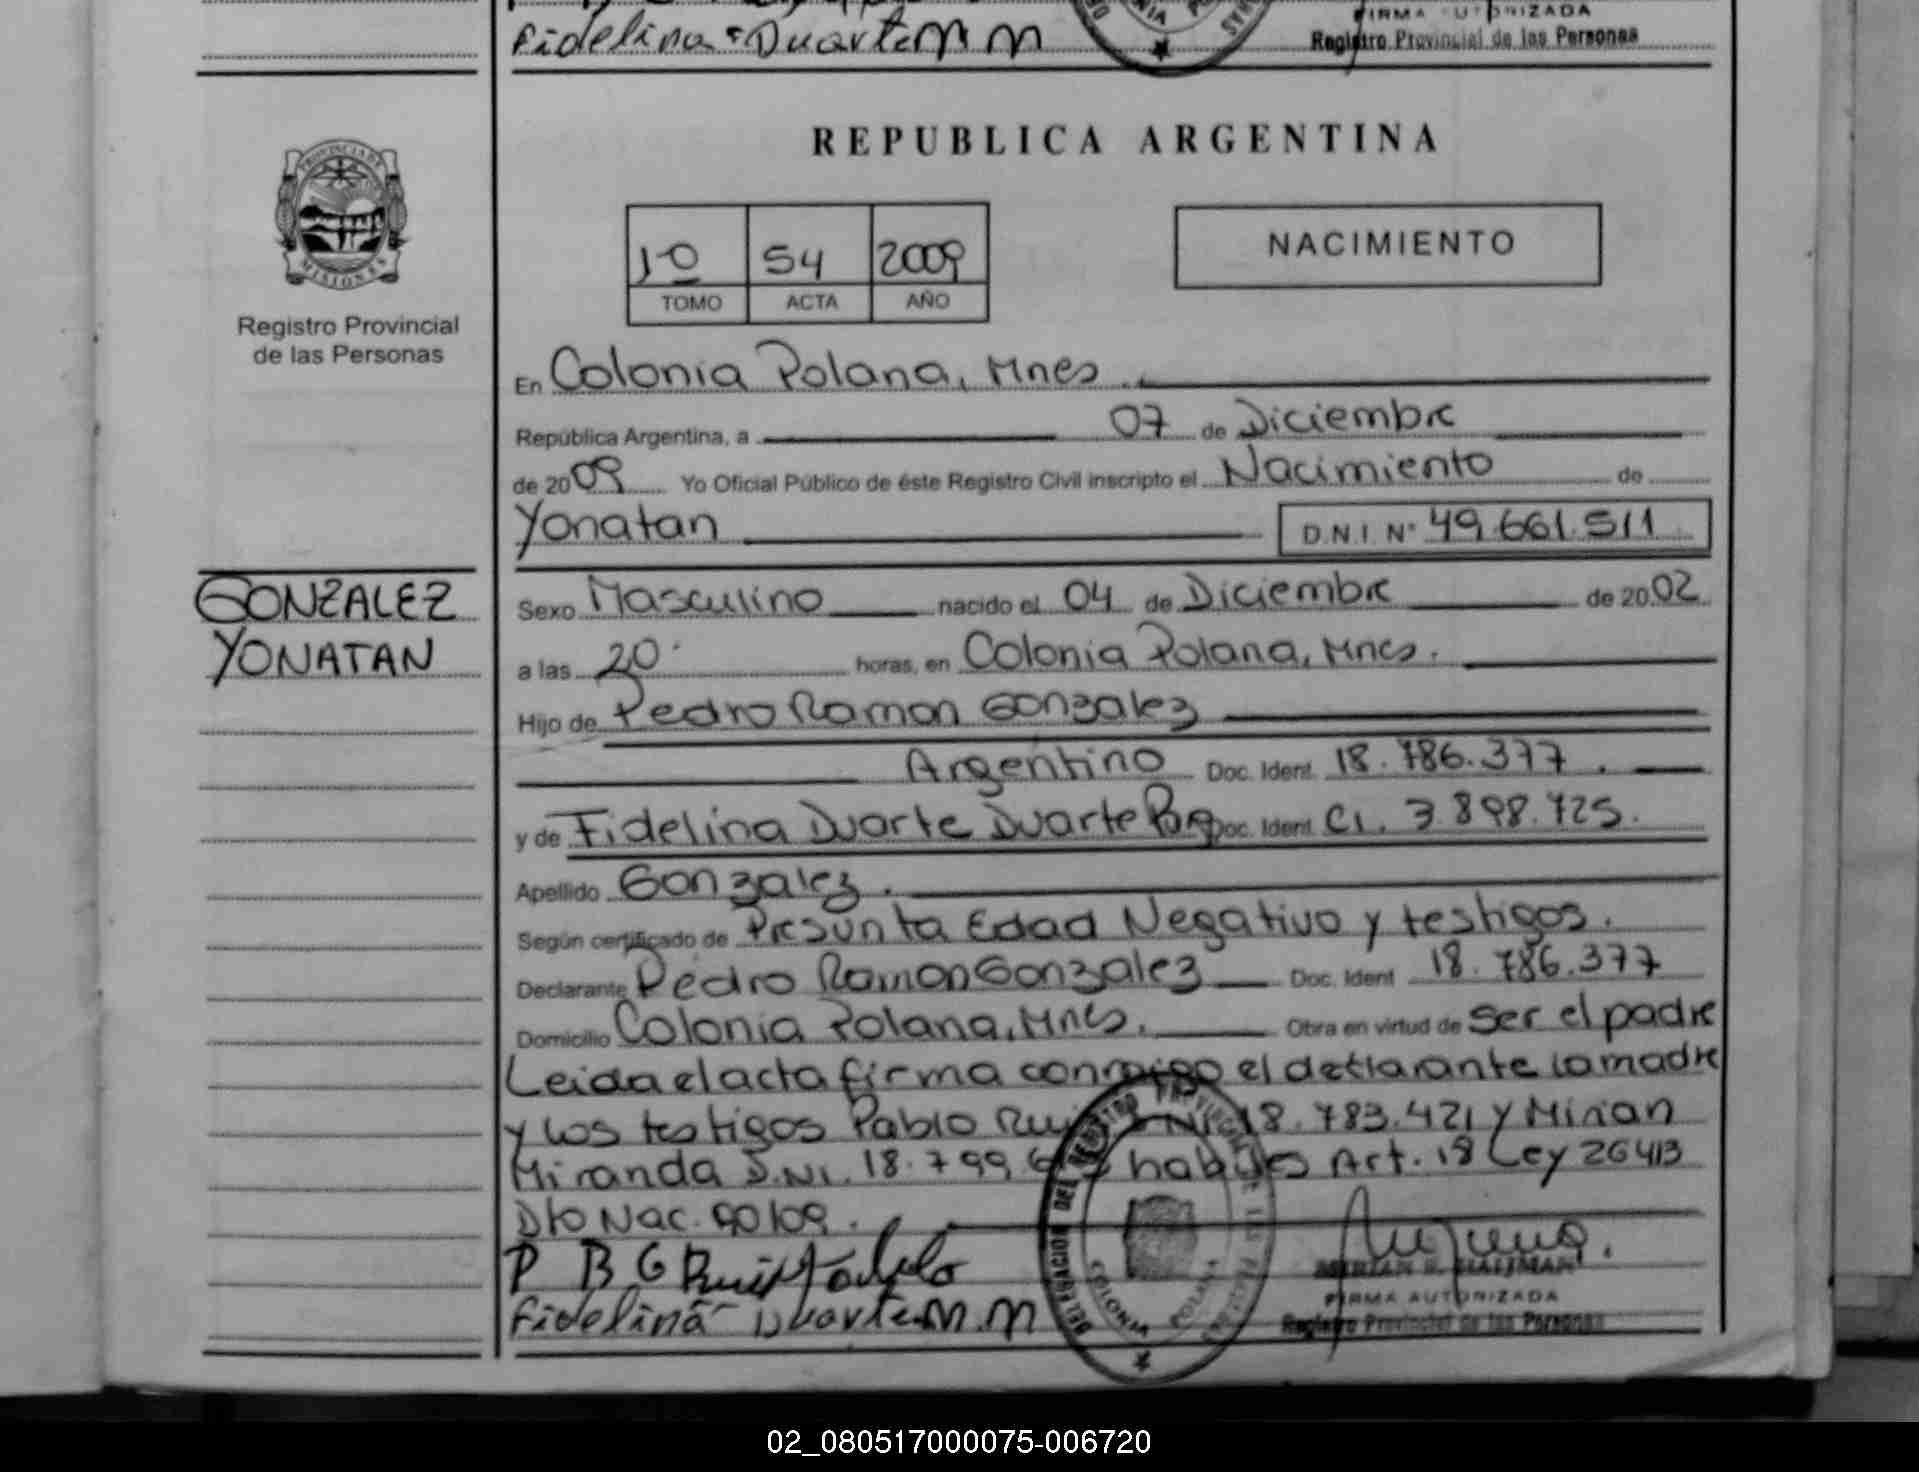 Fidelina Duarte M M
FIRMA AUTORIZADA
Registro Provincial de las Personas
PROVINCIA DE
MISIONES
Registro Provincial
de las Personas
REPUBLICA ARGENTINA
1º 54 2009
TOMO ACTA AÑO
NACIMIENTO
En Colonia Polana, Mnes.
República Argentina, a 07 de Diciembre
de 2009 Yo Oficial Público de éste Registro Civil inscripto el Nacimiento de
Yonatan D.N.I. Nº 49.661.511
GONZALEZ
YONATAN
Sexo Masculino nacido el 04 de Diciembre de 2002
a las 20 horas, en Colonia Polana, Mnes.
Hijo de Pedro Ramon Gonzalez
Argentino Doc. Ident. 18.786.377.
y de Fidelina Duarte Duarte Doc. Ident. CI. 3.898.725.
Apellido Gonzalez.
Según certificado de Presunta Edad Negativo y testigos.
Declarante Pedro Ramon Gonzalez Doc. Ident 18.786.377
Domicilio Colonia Polana, Mnes. Obra en virtud de ser el padre
Leida el acta firma conmigo el declarante la madre
y los testigos Pablo Ruiz 18.783.421 y Mirian
Miranda D.NI. 18.799.6 habiles Art. 18 Ley 26413
Dto Nac. 90109.
P B G Ruiz Pablo
Fidelina Duarte M.M
DELEGACION DEL REGISTRO PROVINCIAL DE LAS PERSONAS
COLONIA POLANA
FIRMA AUTORIZADA
Registro Provincial de las Personas
02_080517000075-006720